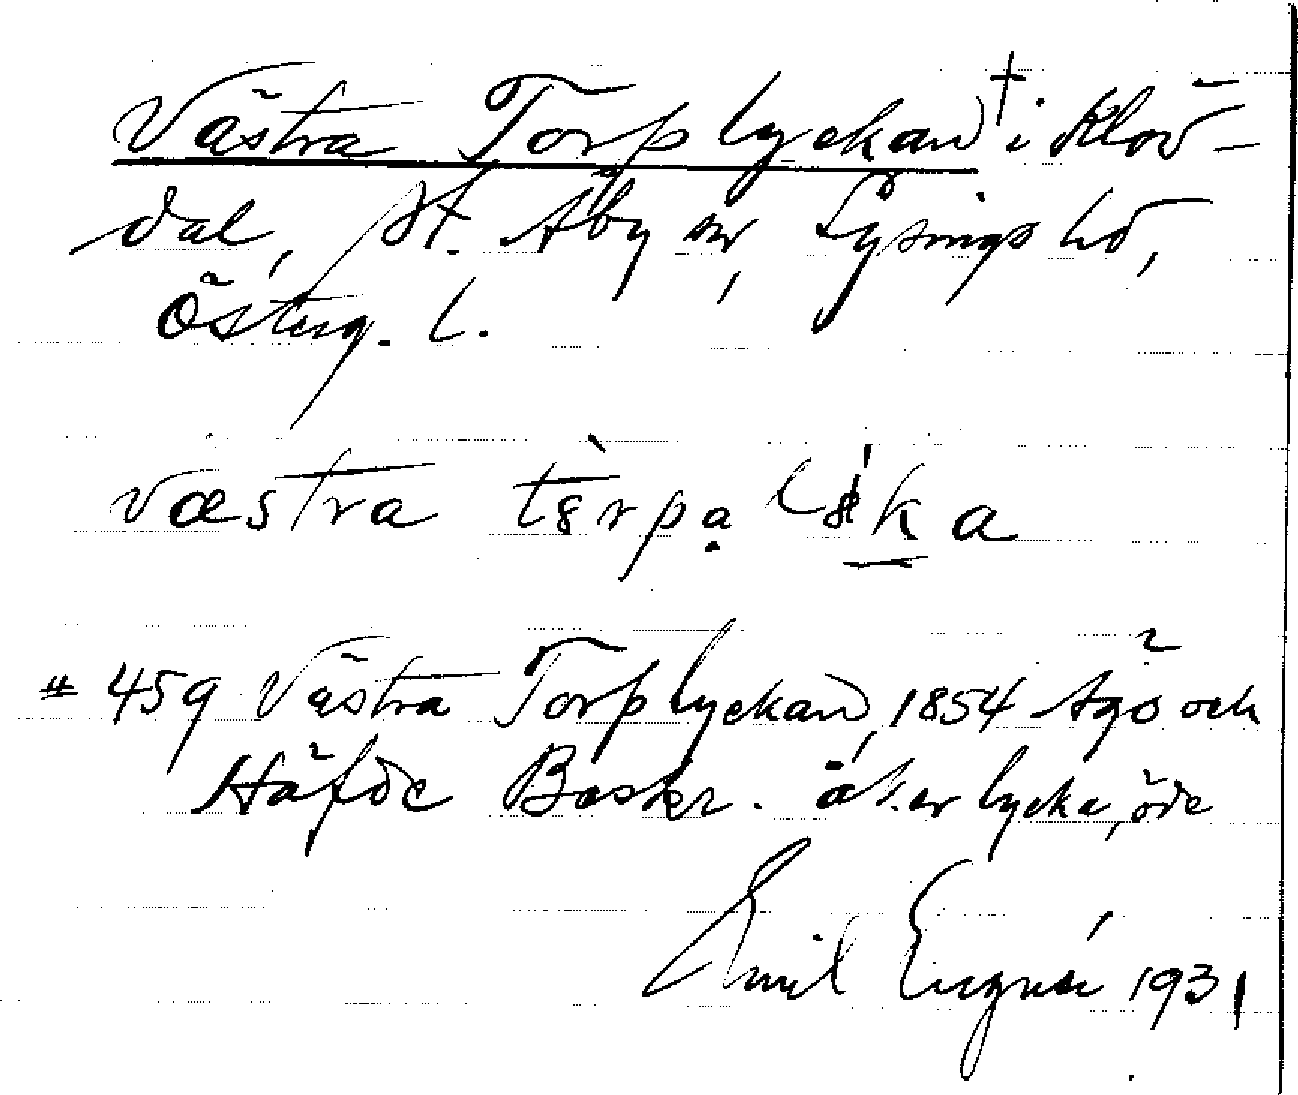 Västra Torplyckan † i Klöv-
dal, St. Åby sn, Lysings hd,
Österg. l.
væstra tɞ̀rpa lɞ́ka
# 459 Västra Torplyckan, 1854 Ägo och
Häfde Beskr. åkerlycka, öde
Emil Engnér 1931